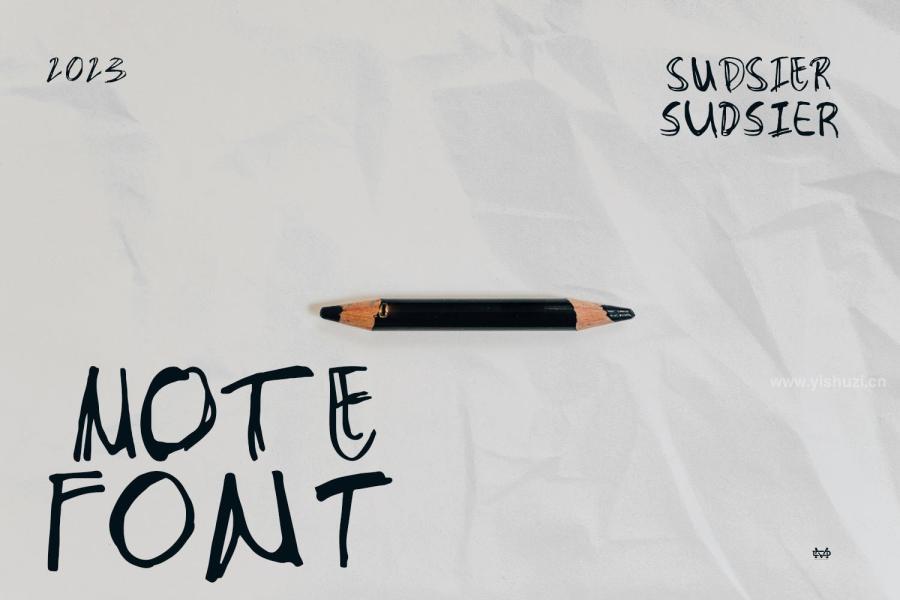 2023
SUDSIER
SUDSIER
NOTE
FONT
www.yishuzi.cn